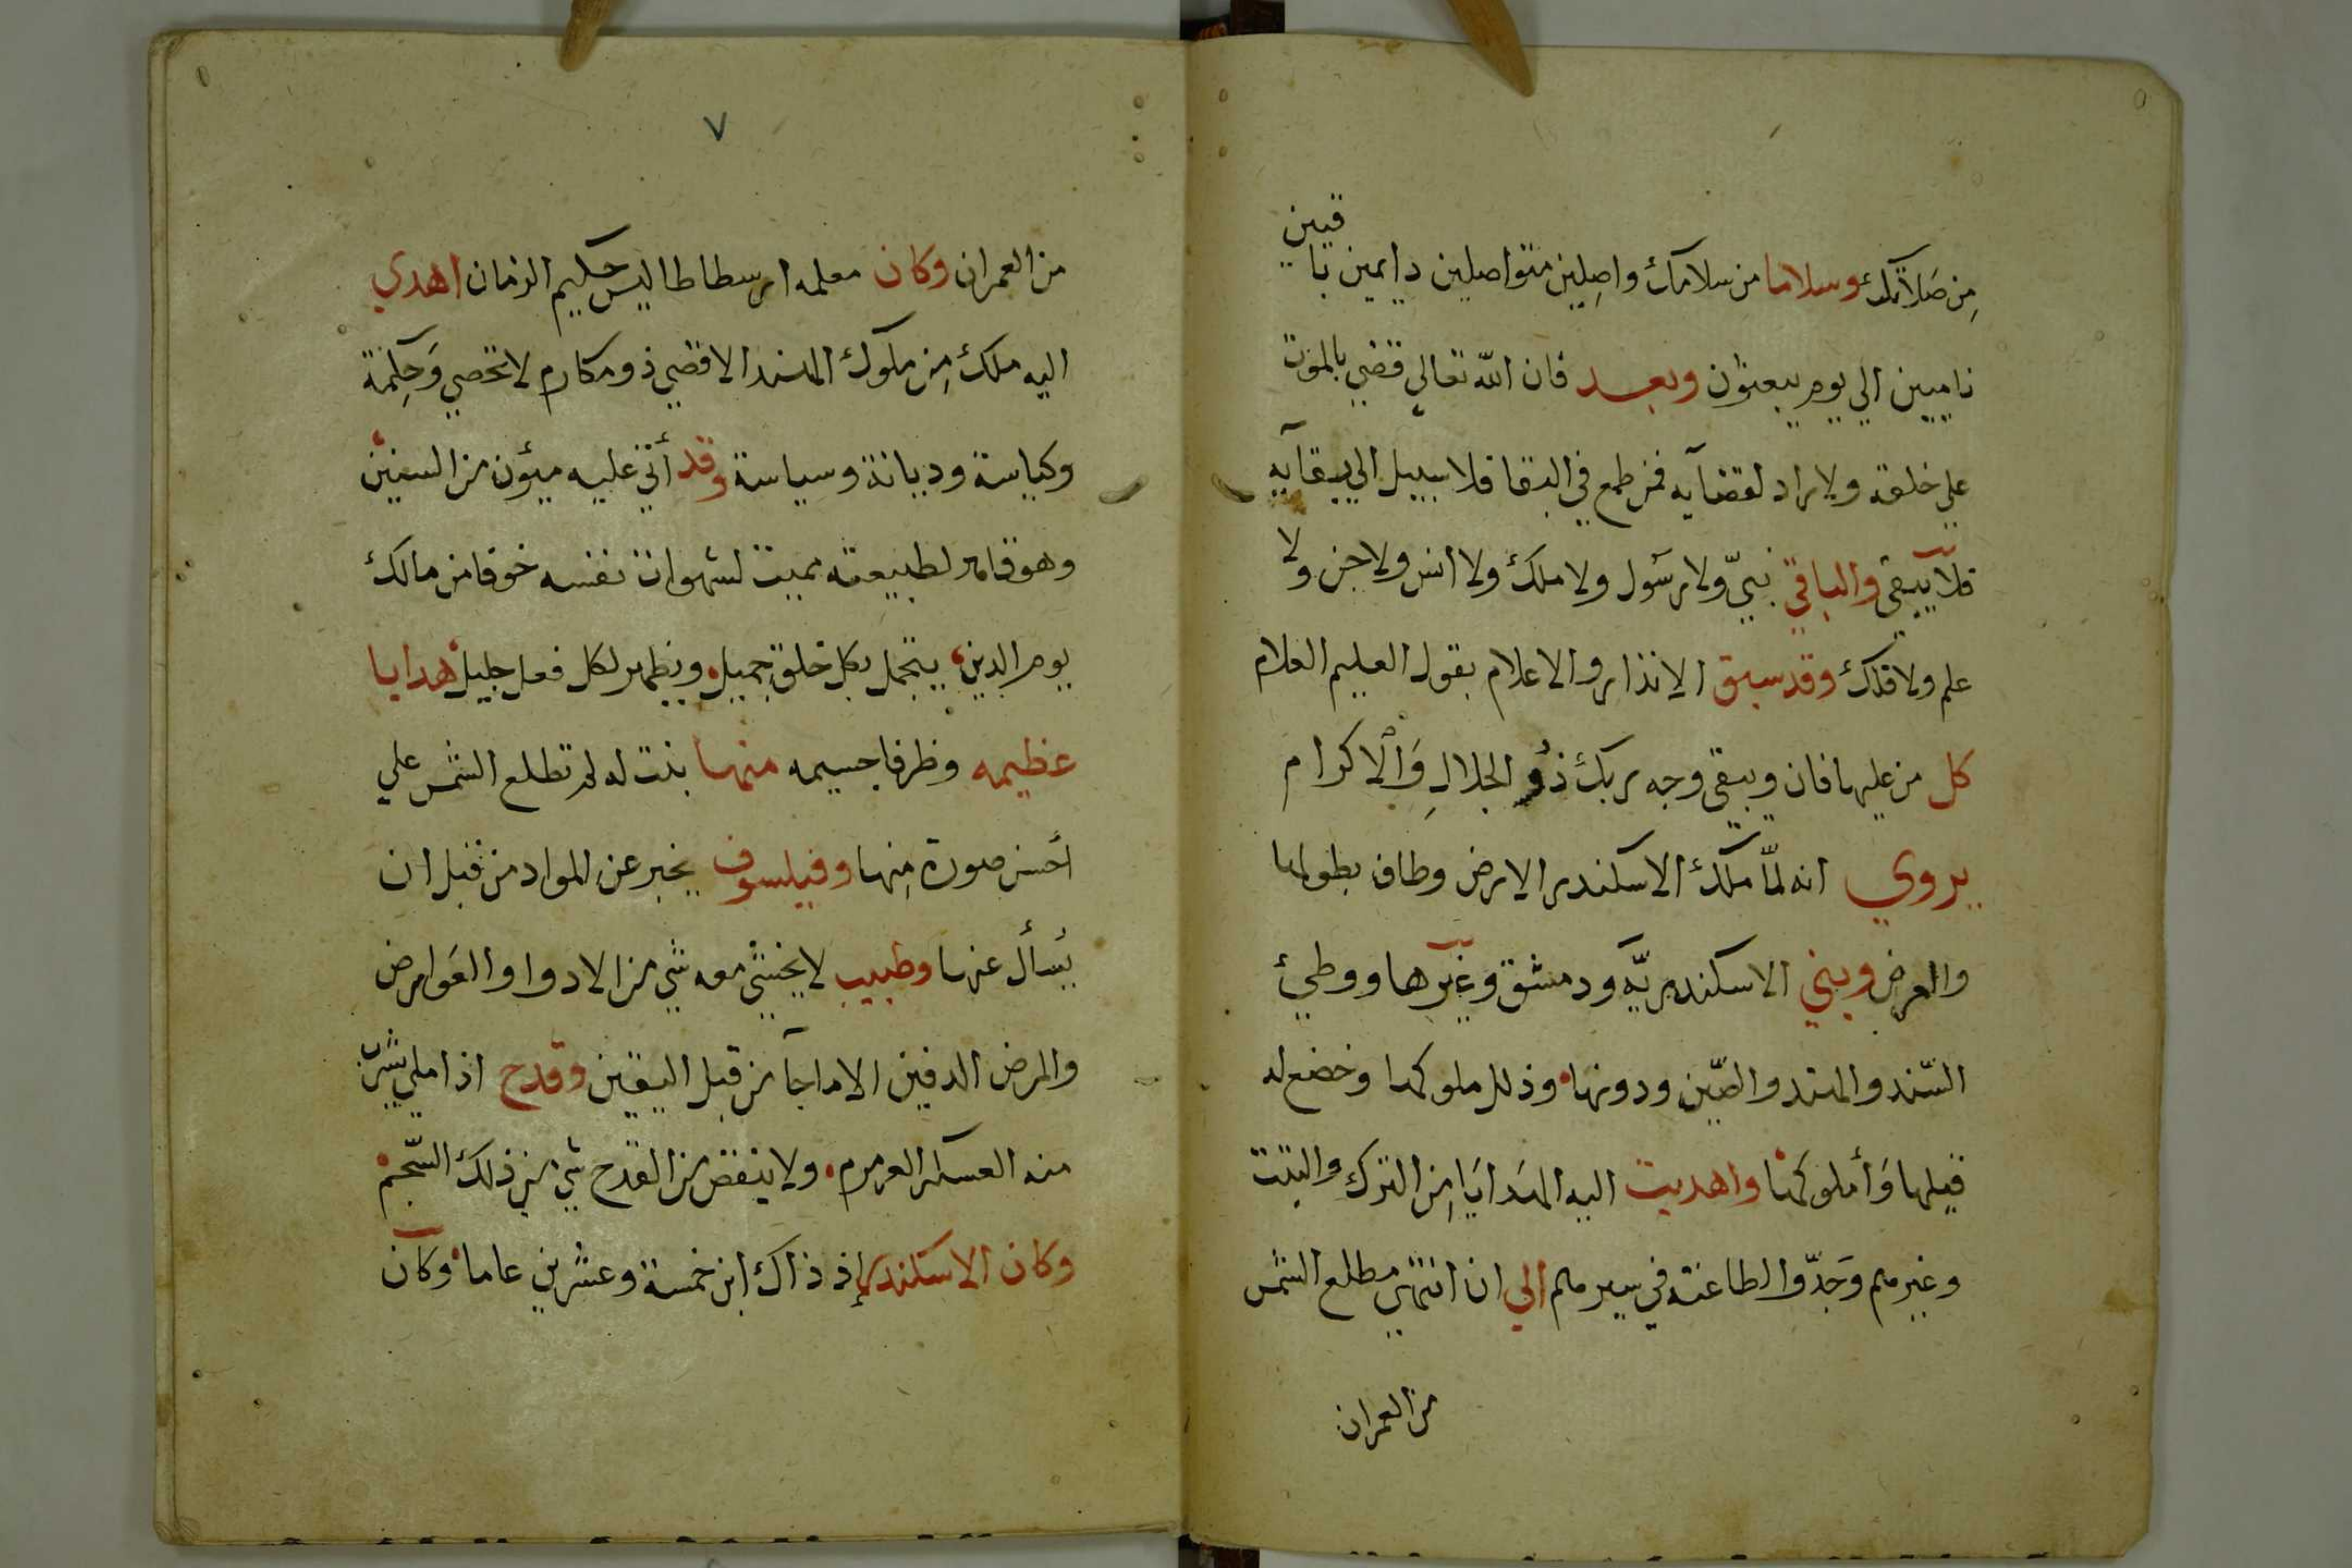 من صلاتك وسلاما من سلامك واصلين متواصلين دايمين باقيين
ناميين الي يوم يبعثون وبعد فان الله تعالي قضي بالموت
علي خلقه ولا راد لقضآيه فمن طمع في البقا فلا سبيل الي بقآيه
فلا يبقي والباقي نبيّ ولا رسول ولا ملك ولا انس ولا جن ولا
علم ولا فلك وقد سبق الانذار والاعلام بقول العليم العلام
كل من عليها فان ويبقي وجه ربك ذُو الجلالِ وَالْاكرام
يروي انه لمّا ملك الاسكندر الارض وطاف بطولها
والعرض وبني الاسكندريّه ودمشق وغيرها ووطيء
السّند والهند والصّين ودونها وذلل ملوكها وخضع له
قيلها وَأملوكها واهديت اليه الهَدايَا مِن الترك والتبت
وغيرهم وَجدّوا لطاعته في سيرهم الي ان انتهي مطلع الشمس
من العمران
٧
من العمران وكان معلمه ارسطاطاليس حكيم الزمان اهدي
اليه ملك مِن ملوك الهند الاقصي ذو مكارم لا تحصي وَحِكمة
وكياسة وديانة وسياسة وقد أتي عليه ميؤن من السنين
وهو قاهر لطبيعته مميت لشهوات نفسه خوفا من مالك
يوم الدين يتجمل بكل خلق جميل ويظهر لكل فعل جليل هدايا
عظيمه وظرفا جسيمه منها بنت له لم تطلع الشمس علي
أحسن صورة مِنها وفيلسوف يخبر عن المواد من قبل ان
يَسأل عنها وطبيب لا يخشي معه شي من الادوا والعَوارض
والمرض الدفين الا ما جآ من قبل اليقين وقدح اذا ملي يشرب
منه العسكر العرمرم ولا ينقص من القدح شي من ذلك السّجم
وكان الاسكندر إذ ذاك ابن خمسة وعشرين عاما وكان